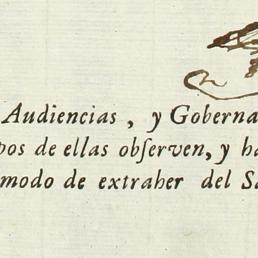 Audiencias, y Goberna
pos de ellas obſerven, y ha
modo de extraher del Sa